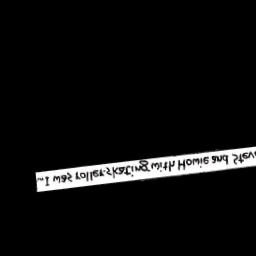 ...I was roller-skating with Howie and Steve